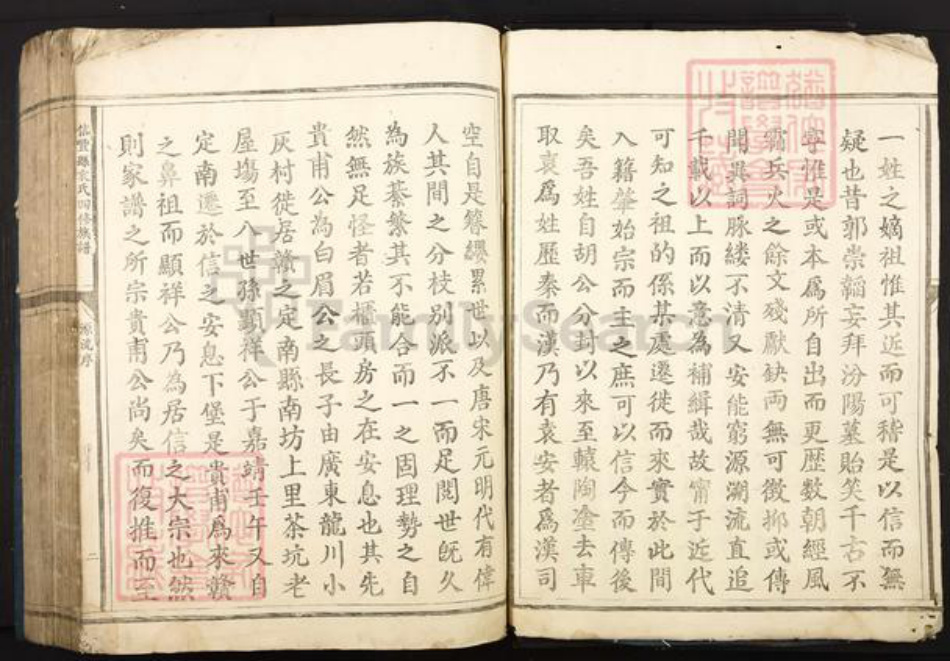 一姓之嫡祖惟其近而可稽是以信而無
疑也昔郭崇韜妄拜汾陽墓貽笑千古不
寧惟是或本爲所自出而更歷数朝經風
霜兵火之餘文殘獻缺兩無可徵抑或傳
聞異詞脉縷不清又安能窮源溯流直追
千載以上而以意為補緝哉故甯于近代
可知之祖的係某處遷徙而來實於此間
入籍肇始宗而主之庶可以信今而傳後
矣吾姓自胡公分封以來至轅陶塗去車
取袁爲姓歷秦而漢乃有袁安者爲漢司
空自是簪纓累世以及唐宋元明代有偉
人其間之分枝別派不一而足閱世旣久
為族綦繁其不能合而一之固理勢之自
然無足怪者若櫃頭房之在安息也其先
貴甫公為白眉公之長子由廣東龍川小
灰村徙居贛之定南縣南坊上里茶坑老
屋塲至八世孫顯祥公于嘉靖壬午又自
定南遷於信之安息下堡是貴甫爲來贛
之鼻祖而顯祥公乃為居信之大宗也然
則家譜之所宗貴甫公尚矣而復推而至
信豐縣袁氏四修族譜
源流序
二
FamilySearch